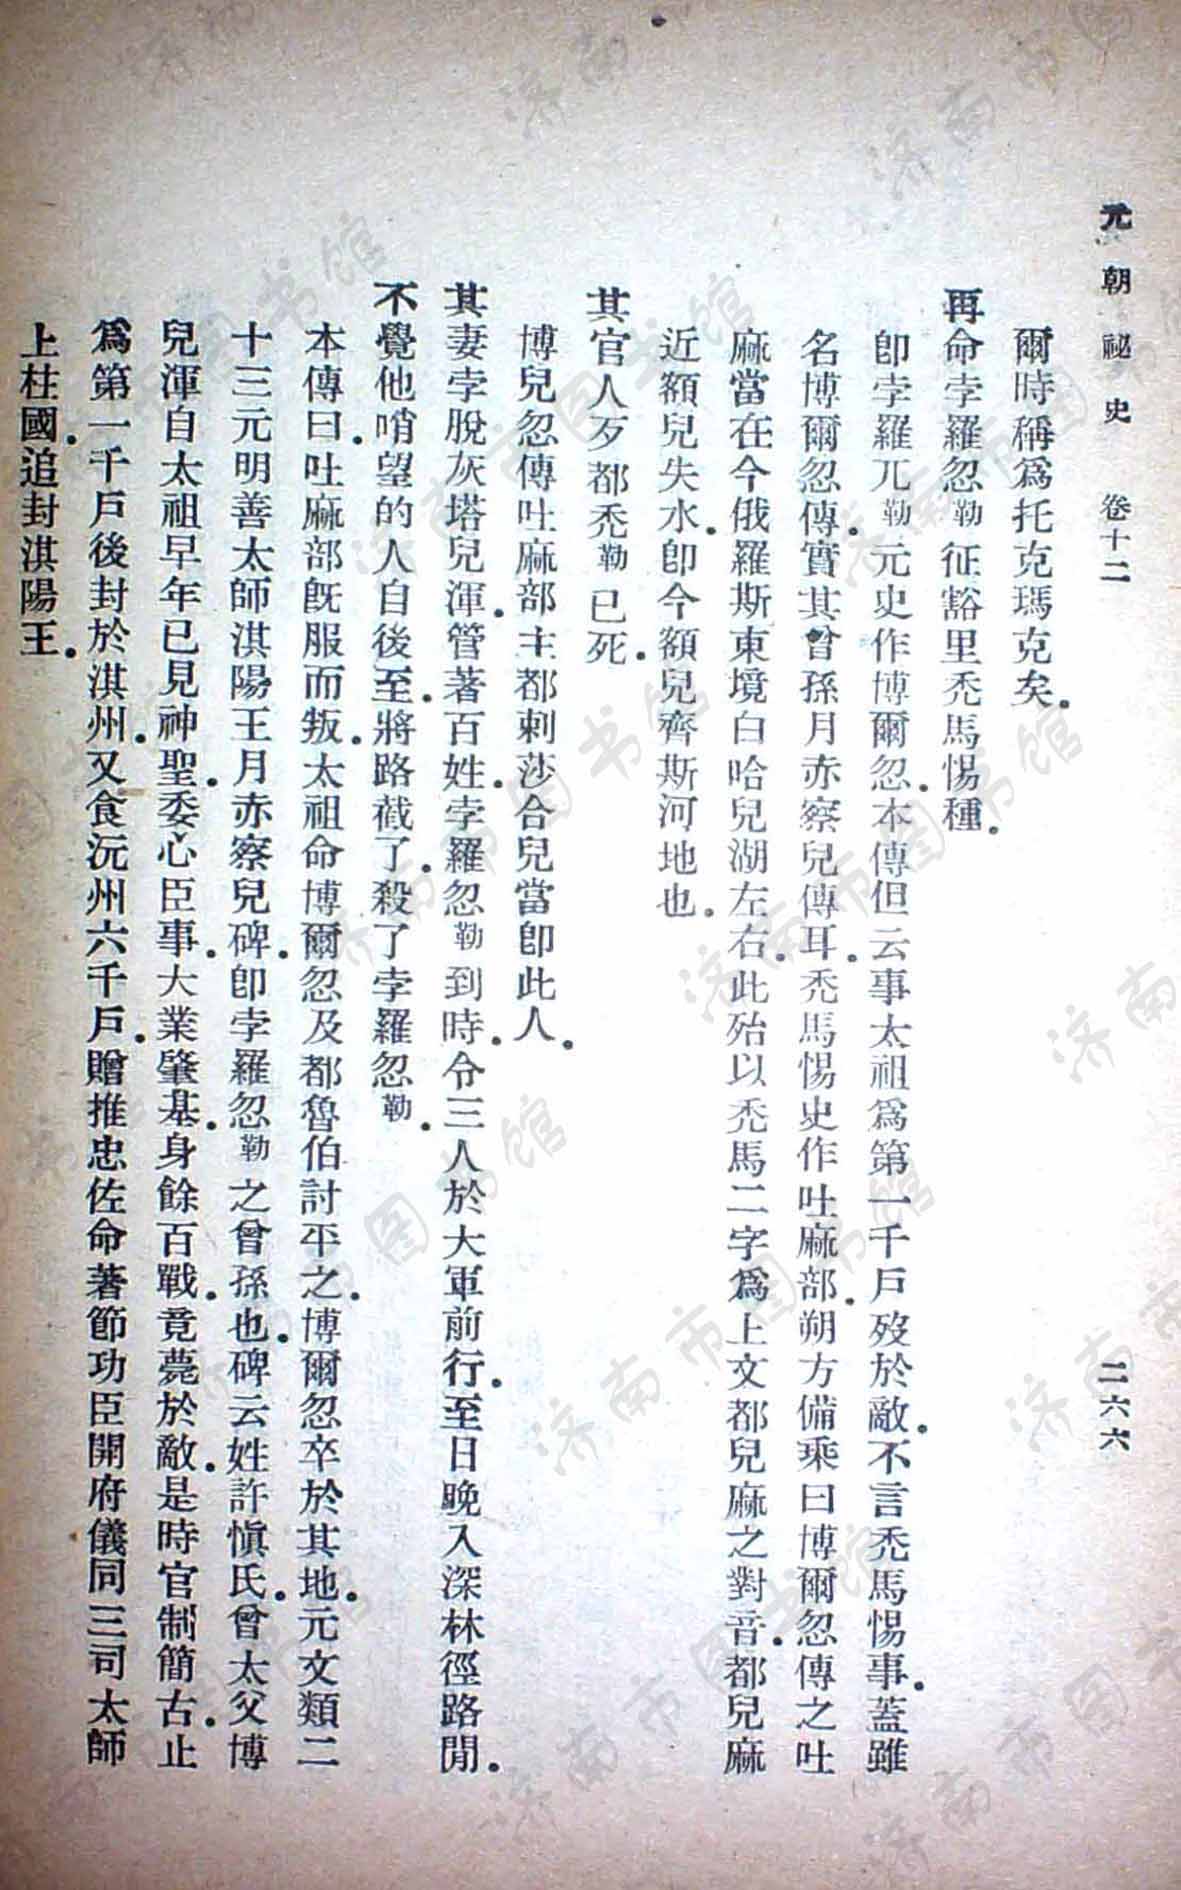 元朝祕史 卷十二 二六六
爾時稱爲托克瑪克矣。
再命孛羅忽勒征豁里禿馬惕種。
卽孛羅兀勒元史作博爾忽。本傳但云事太祖爲第一千戶歿於敵。不言禿馬惕事。蓋雖
名博爾忽傳。實其曾孫月赤察兒傳耳。禿馬惕史作吐麻部。朔方備乘曰博爾忽傳之吐
麻當在今俄羅斯東境白哈兒湖左右。此殆以禿馬二字爲上文都兒麻之對音。都兒麻
近額兒失水。卽今額兒齊斯河地也。
其官人歹都禿勒已死。
博兒忽傳吐麻部主都剌莎合兒當卽此人。
其妻孛脫灰塔兒渾。管著百姓。孛羅忽勒到時。令三人於大軍前行。至日晚入深林徑路閒。
不覺他哨望的人自後至。將路截了。殺了孛羅忽勒。
本傳曰。吐麻部旣服而叛。太祖命博爾忽及都魯伯討平之。博爾忽卒於其地。元文類二
十三元明善太師淇陽王月赤察兒碑。卽孛羅忽勒之曾孫也。碑云姓許愼氏。曾太父博
兒渾自太祖早年已見神聖。委心臣事。大業肇基。身餘百戰。竟薨於敵。是時官制簡古。止
爲第一千戶後封於淇州。又食沅州六千戶。贈推忠佐命著節功臣開府儀同三司太師
上柱國。追封淇陽王。
济南市图书馆